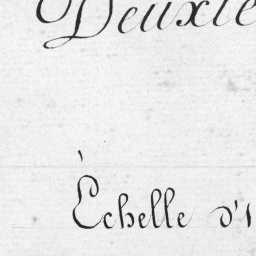 Deuxie
Échelle d'1